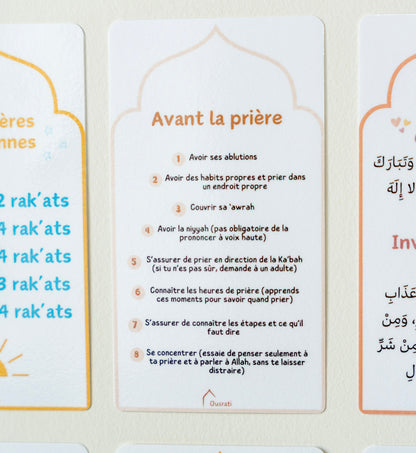 ères
nnes
2 rak'ats
4 rak'ats
4 rak'ats
3 rak'ats
4 rak'ats
Avant la prière
1 Avoir ses ablutions
2 Avoir des habits propres et prier dans
un endroit propre
3 Couvrir sa 'awrah
4 Avoir la niyyah (pas obligatoire de la
prononcer à voix haute)
5 S'assurer de prier en direction de la Ka'bah
(si tu n'es pas sûr, demande à un adulte)
6 Connaître les heures de prière (apprends
ces moments pour savoir quand prier)
7 S'assurer de connaître les étapes et ce qu'il
faut dire
8 Se concentrer (essaie de penser seulement à
ta prière et à parler à Allah, sans te laisser
distraire)
Ousrati
وَتَبَارَكَ
لا إِلَهَ
Inv
عَذَابِ
وَمِنْ
مِنْ شَرِّ